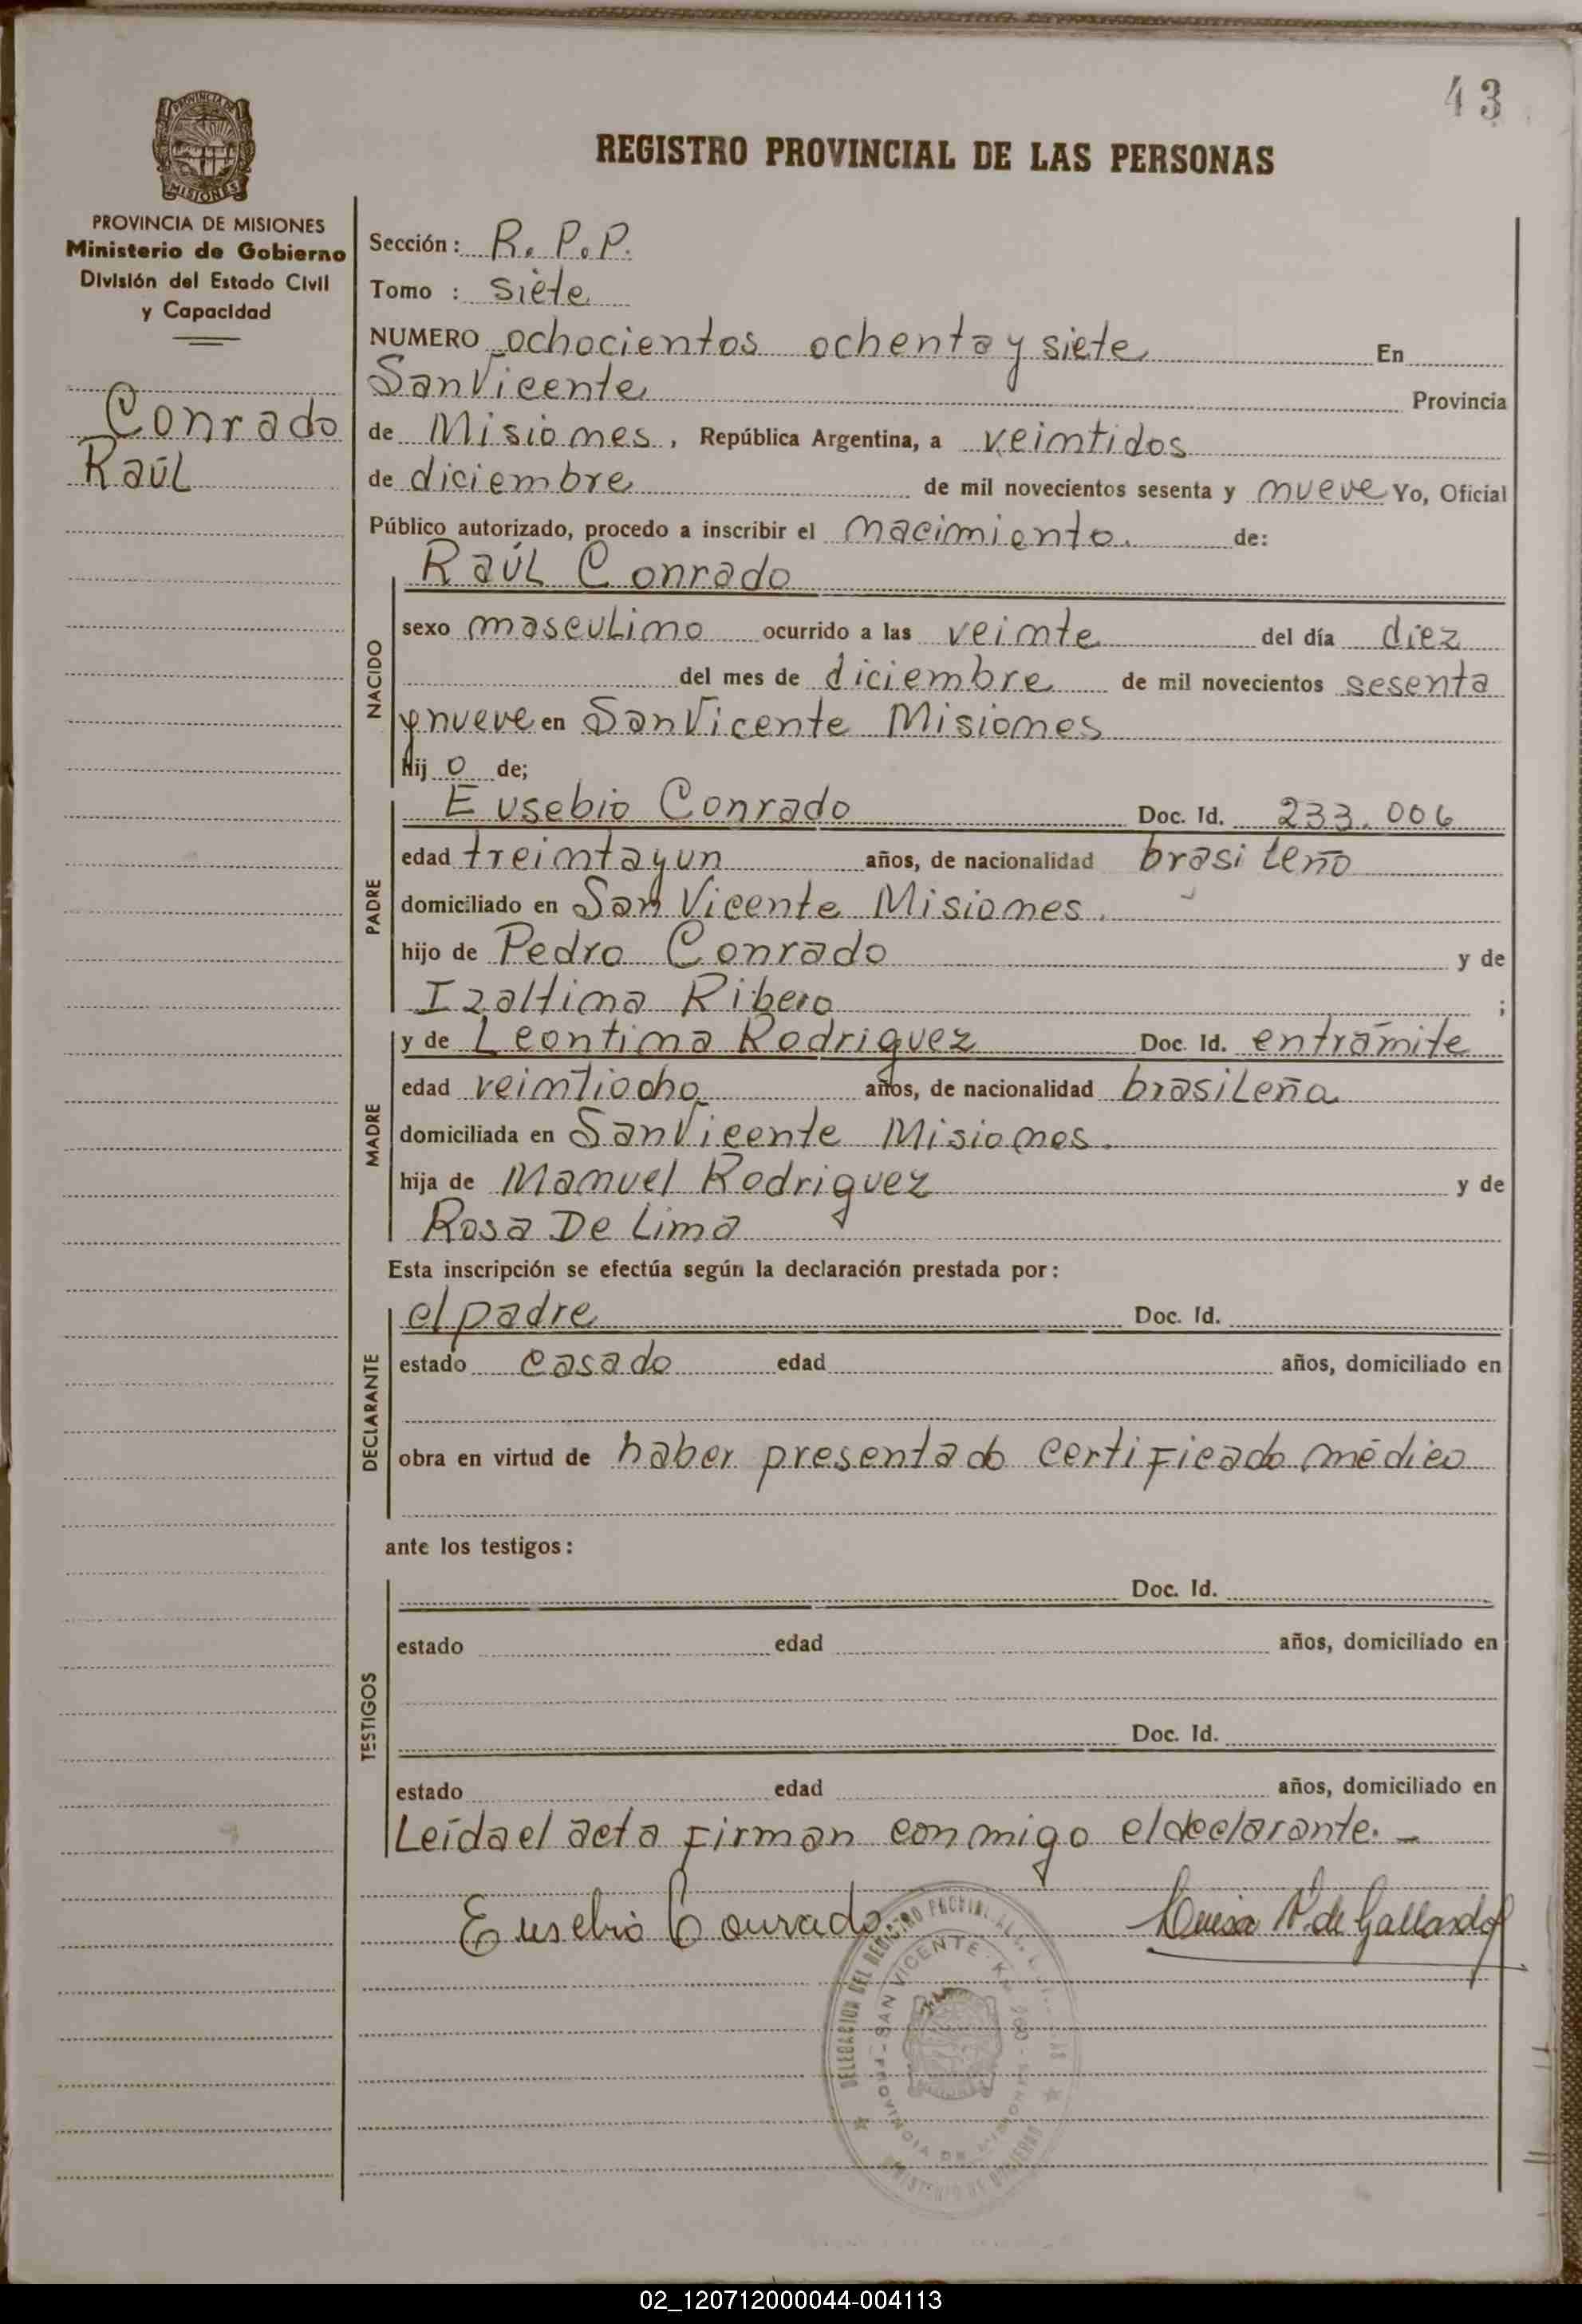 43
REGISTRO PROVINCIAL DE LAS PERSONAS
PROVINCIA DE
MISIONES
PROVINCIA DE MISIONES
Ministerio de Gobierno
División del Estado Civil
y Capacidad
Conrado
Raúl
Sección: R. P. P.
Tomo : siete
NUMERO ochocientos ochenta y siete En
San Vicente Provincia
de Misiones, República Argentina, a veintidos
de diciembre de mil novecientos sesenta y nueve Yo, Oficial
Público autorizado, procedo a inscribir el nacimiento. de:
Raúl Conrado
NACIDO
sexo masculino ocurrido a las veinte del día diez
del mes de diciembre de mil novecientos sesenta
y nueve en San Vicente Misiones
Hij o de;
PADRE
Eusebio Conrado Doc. Id. 233.006
edad treinta y un años, de nacionalidad brasileño
domiciliado en San Vicente Misiones.
hijo de Pedro Conrado y de
Izaltina Ribero ;
MADRE
y de Leontina Rodriguez Doc. Id. en trámite
edad veintiocho años, de nacionalidad brasileña
domiciliada en San Vicente Misiones.
hija de Manuel Rodriguez y de
Rosa De Lima
Esta inscripción se efectúa según la declaración prestada por:
DECLARANTE
el padre Doc. Id.
estado casado edad años, domiciliado en
obra en virtud de haber presentado certificado médico
ante los testigos:
TESTIGOS
Doc. Id.
estado edad años, domiciliado en
Doc. Id.
estado edad años, domiciliado en
Leída el acta firman conmigo el declarante. -
Eusebio Conrado Luisa V. de Gallardo
DELEGACION DEL REGISTRO PROVINCIAL DE LAS
SAN VICENTE - Km 260 -
PROVINCIA DE MISIONES
MINISTERIO DE GOBIERNO
02_120712000044-004113